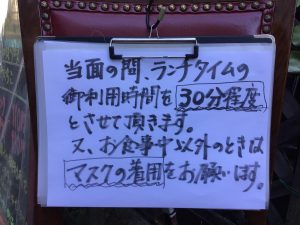 当面の間、ランチタイムの
御利用時間を30分程度
とさせて頂きます。
又、お食事中以外のときは
マスクの着用をお願いします。